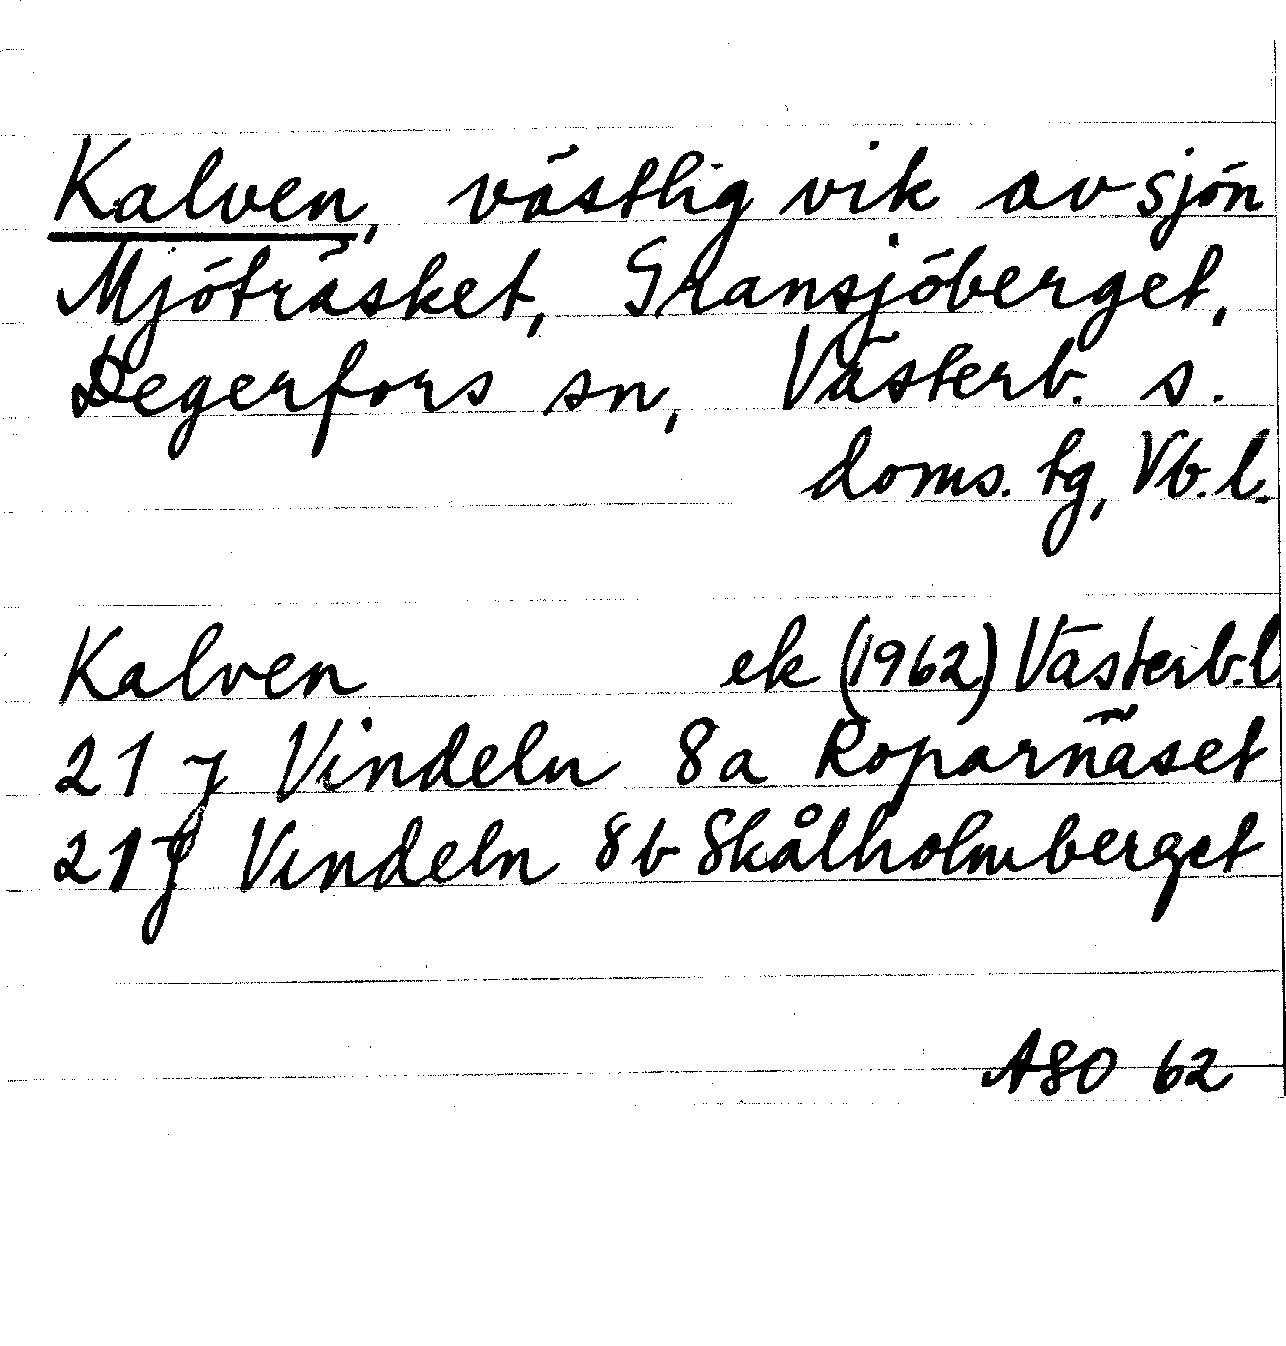 Kalven, västlig vik av sjön
Mjöträsket, Gransjöberget,
Degerfors sn, Västerb. s.
doms. tg, Vb. l.
Kalven ek (1962) Västerb. l
21 J Vindeln 8a Roparnäset
21 J Vindeln 8b Skålholmberget
ASO 62